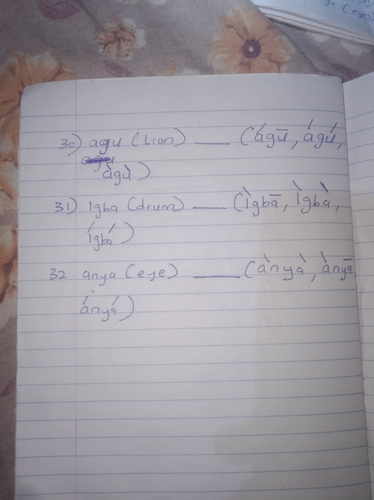 30) agu (Lion) —— (ágū, ágú,
àgù)
31) Igba (drum) —— (Ìgbā, Ìgbà,
Ígbá)
32 anya (eye) —— (ànyà, ànyā
ányá)